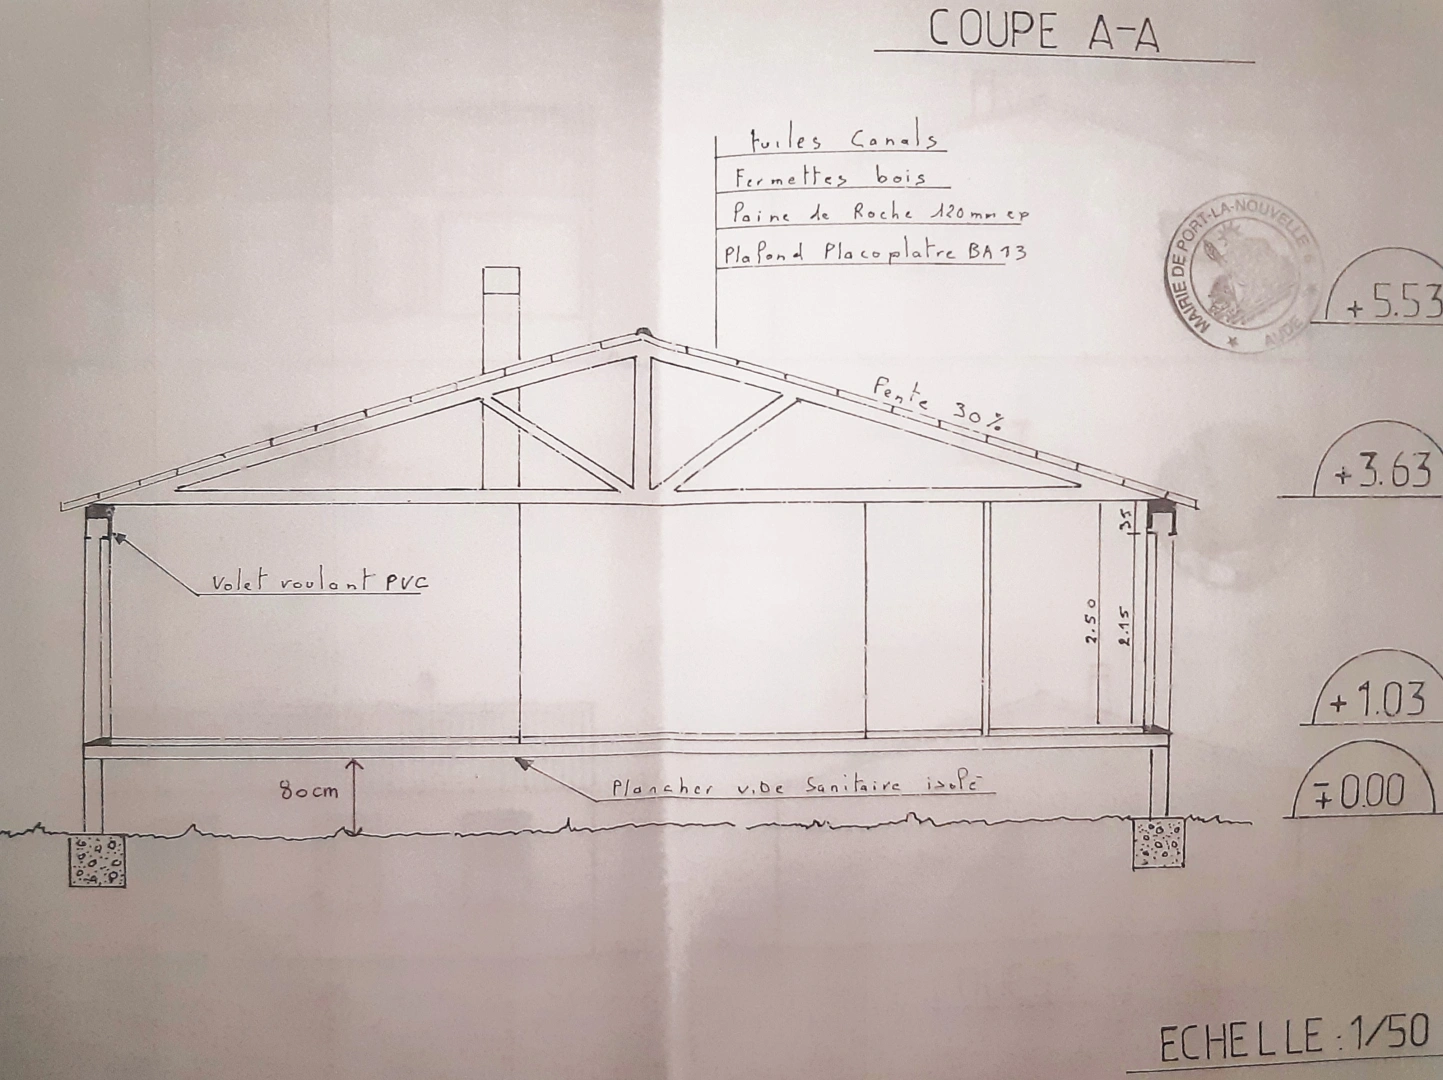 COUPE A-A
tuiles Canals
Fermettes bois
Laine de Roche 120mm ep
Plafond Placoplatre BA 13
MAIRIE DE PORT-LA-NOUVELLE
AUDE
+5.53
Pente 30%
+3.63
35
Volet roulant PVC
2.50
2.15
+1.03
80cm
Plancher viDe Sanitaire isolé
∓0.00
ECHELLE : 1/50